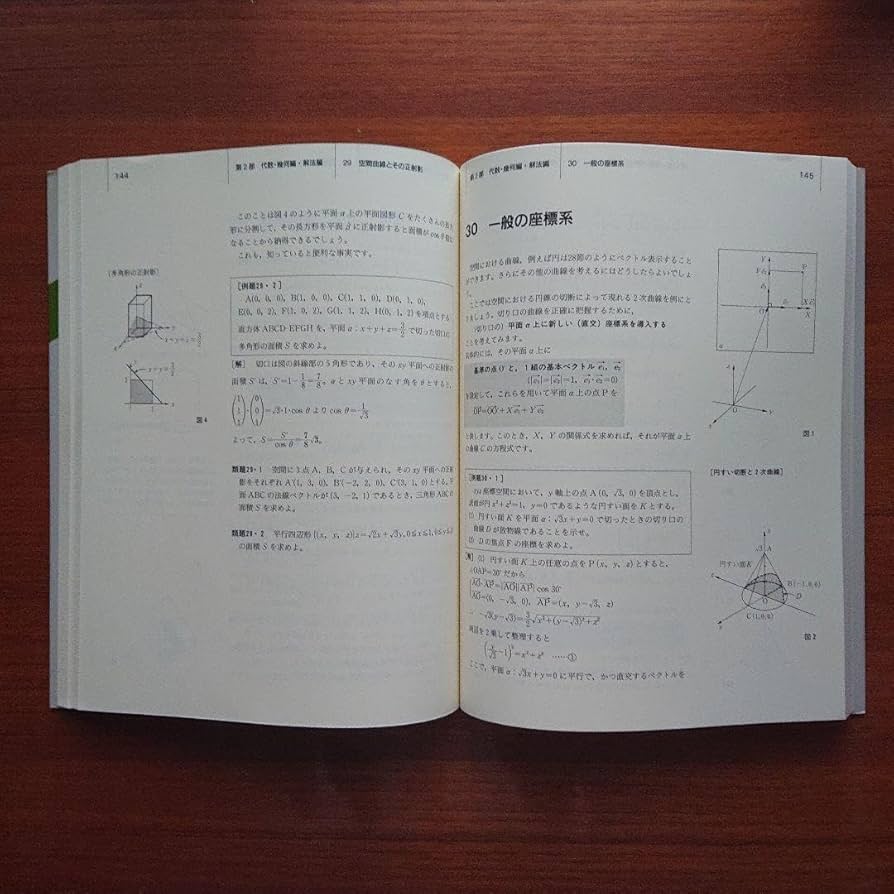 144
第2部 代数・幾何編・解法編
29 空間曲線とその正射影
このことは図4のように平面α上の平面図形Cをたくさんの長方
形に分割して、その長方形を平面βに正射影すると面積がcosθ倍に
なることから納得できるでしょう。
これも、知っていると便利な事実です。
[多角形の正射影]
x+y+z=3/2
x+y=3/2
図4
[例題29・2]
A(0, 0, 0), B(1, 0, 0), C(1, 1, 0), D(0, 1, 0),
E(0, 0, 2), F(1, 0, 2), G(1, 1, 2), H(0, 1, 2) を頂点とする
直方体ABCD-EFGHを、平面α:x+y+z=3/2で切った切口の
多角形の面積Sを求めよ。
[解] 切口は図の斜線部の5角形であり、そのxy平面への正射影の
面積S'は、S'=1-1/8=7/8。αとxy平面のなす角をθとすると、
(1 1 1)・(0 0 1)=√3・1・cosθ より cosθ=1/√3
よって、S=S'/cosθ=7/8√3。
類題29・1 空間に3点A, B, Cが与えられ、そのxy平面への正射
影をそれぞれA'(1, 3, 0), B'(-2, 2, 0), C'(3, 1, 0)とする。平
面ABCの法線ベクトルが(3, -2, 1)であるとき、三角形ABCの
面積Sを求めよ。
類題29・2 平行四辺形{(x, y, z)|z=√2x+√3y, 0≦x≦1, 0≦y≦
の面積Sを求めよ。
第2部 代数・幾何編・解法編
30 一般の座標系
145
30 一般の座標系
空間における曲線、例えば円は28節のようにベクトル表示すること
ができます。さらにその他の曲線を考えるにはどうしたらよいでしょ
ここでは空間における円錐の切断によって現れる2次曲線を例にと
りましょう。切り口の曲線を正確に把握するために、
(切り口の)平面α上に新しい(直交)座標系を導入する
ことを考えてみます。
具体的には、その平面α上に
基準の点O'と、1組の基本ベクトルe₁, e₂
(|e₁|=|e₂|=1, e₁・e₂=0)
を設定して、これらを用いて平面α上の点Pを
OP=OO'+Xe₁+Ye₂
と表します。このとき、X, Yの関係式を求めれば、それが平面α上
の曲線Cの方程式です。
図1
[例題30・1]
xyz座標空間において、y軸上の点A(0, √3, 0)を頂点とし、
底面が円x²+z²=1, y=0であるような円すい面をKとする。
(1) 円すい面Kを平面α:√3x+y=0で切ったときの切り口の
曲線Dが放物線であることを示せ。
(2) Dの焦点Fの座標を求めよ。
[円すい切断と2次曲線]
円すい面K
√3
A
B(-1,0,0)
D
C(1,0,0)
図2
[解] (1) 円すい面K上の任意の点をP(x, y, z)とすると、
∠OAP=30°だから
AO・AP=|AO||AP|cos 30°
AO=(0, -√3, 0), AP=(x, y-√3, z)
∴ -√3(y-√3)=3/2√x²+(y-√3)²+z²
両辺を2乗して整理すると
(y/√3-1)²=x²+z² ……①
ここで、平面α:√3x+y=0に平行で、かつ直交するベクトルを